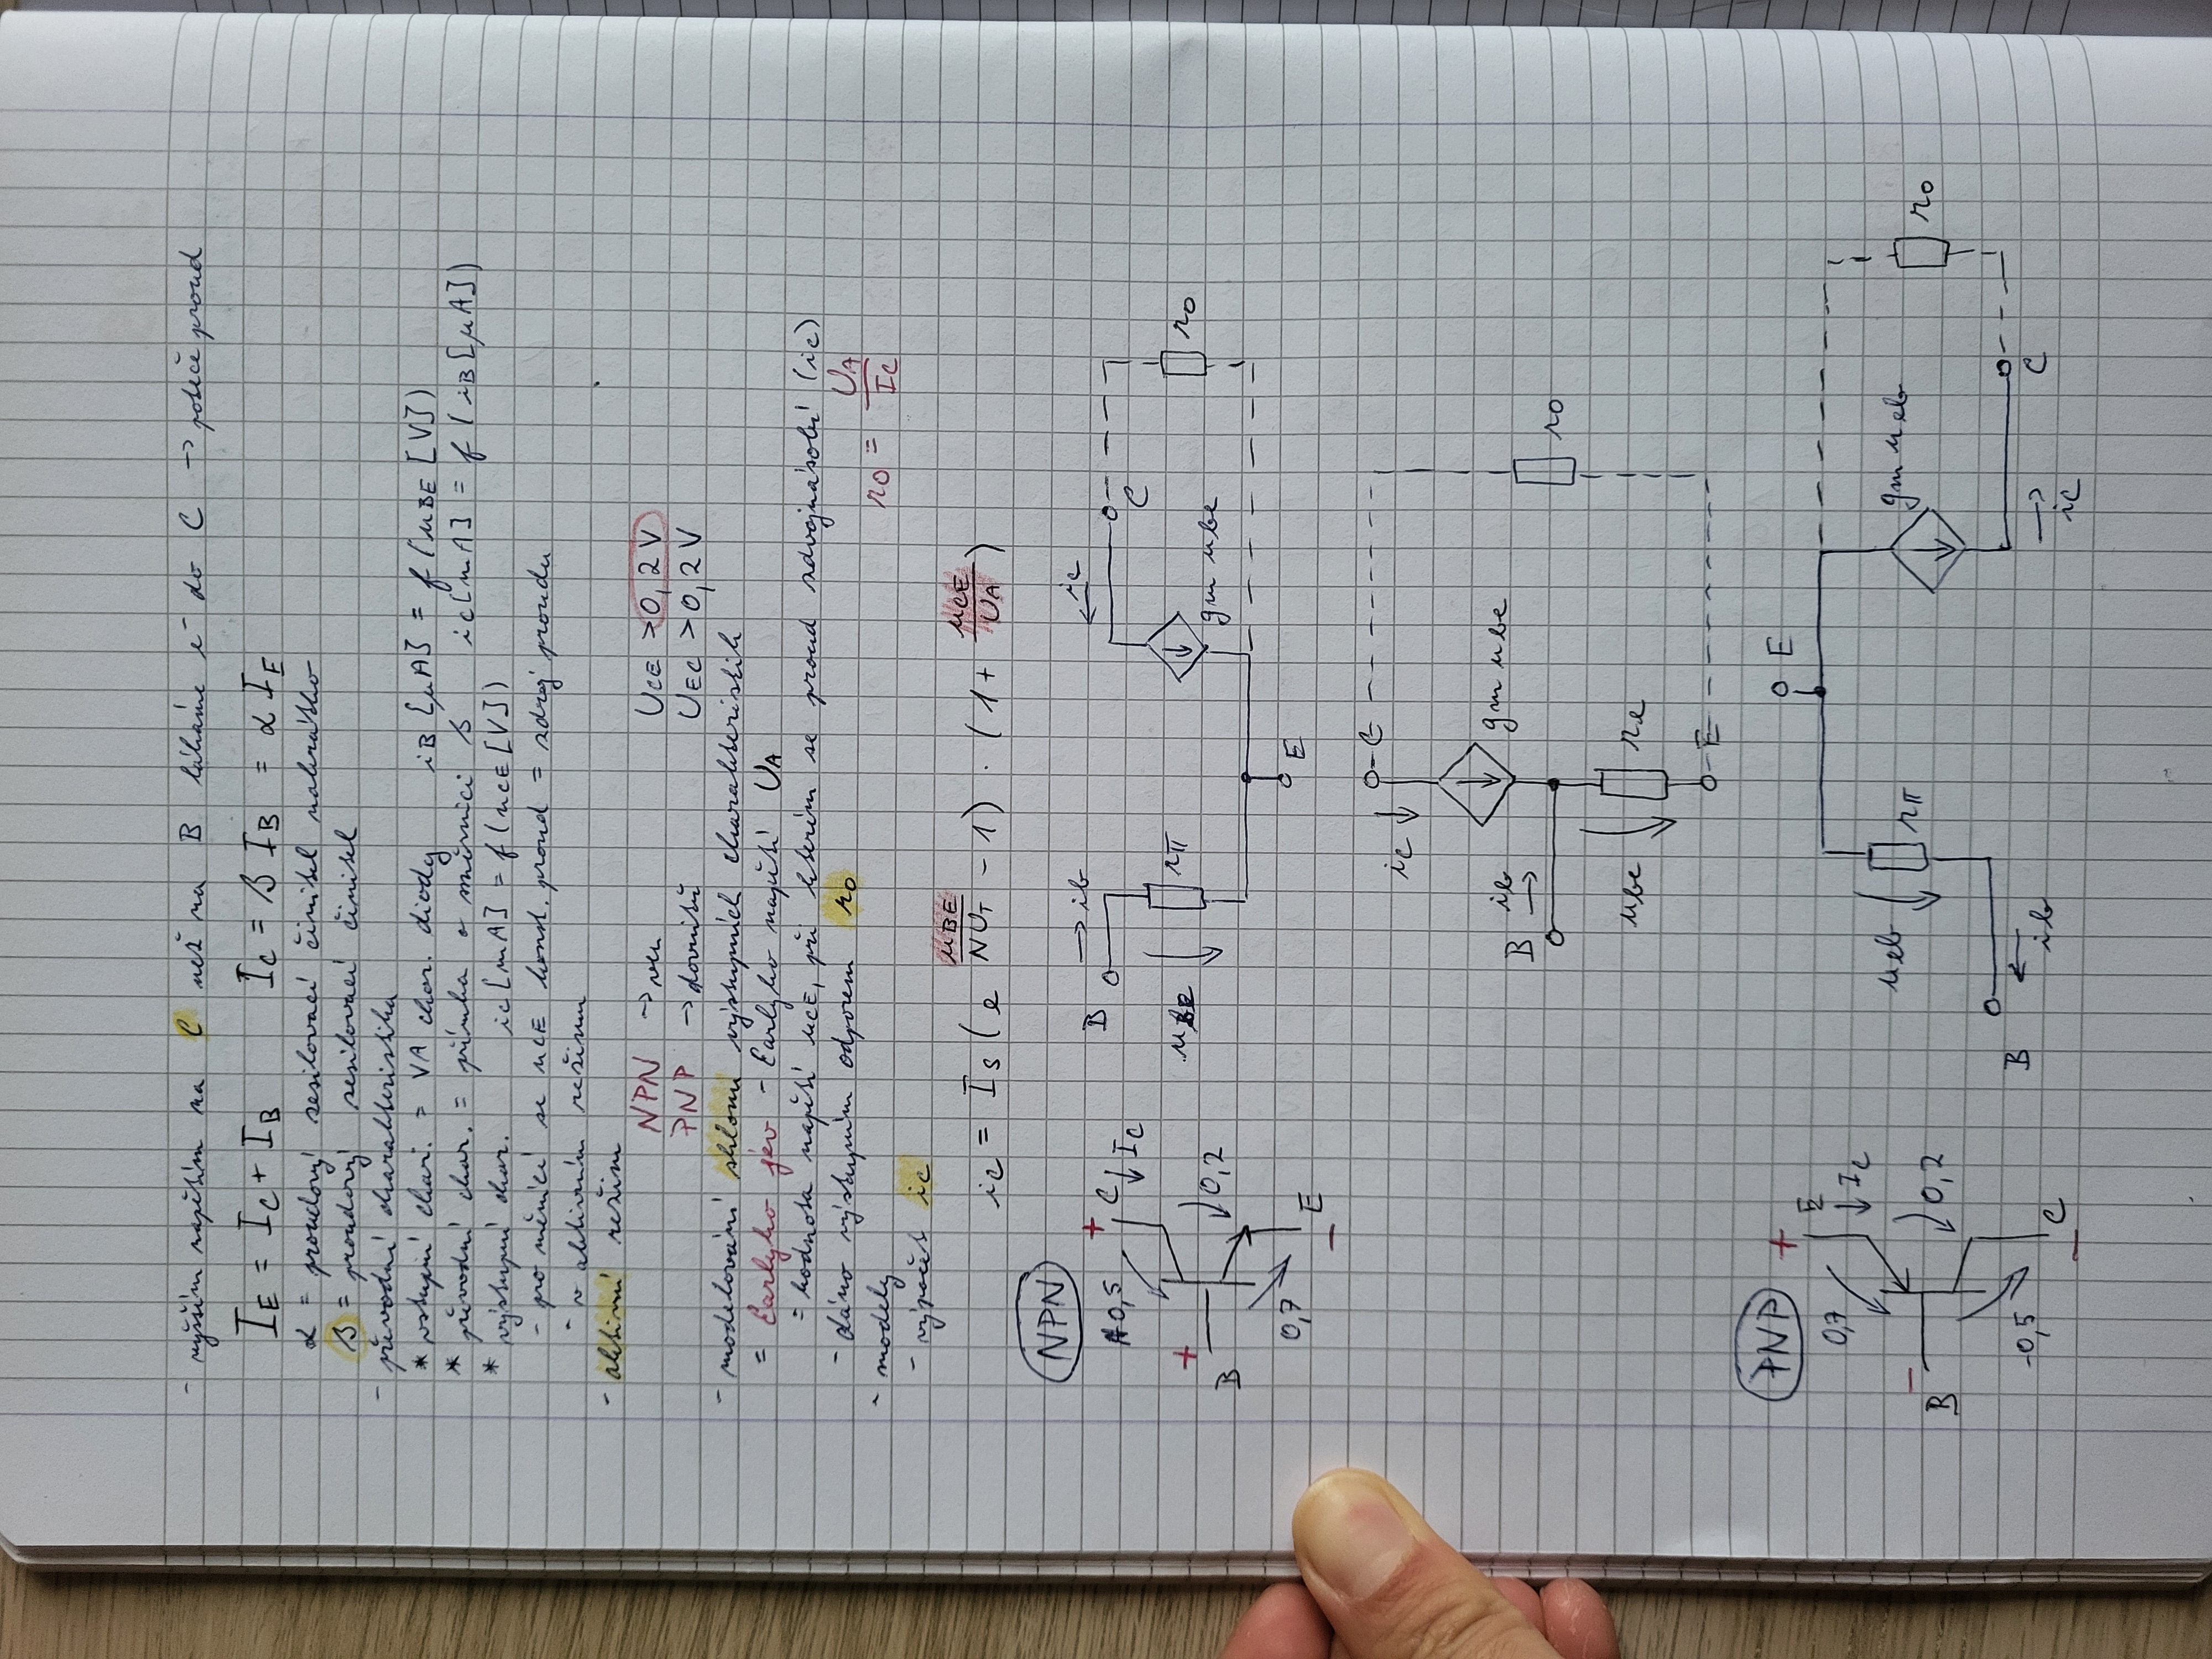 - vyšším napětím na C než na B lákáme e⁻ do C → poteče proud
I_E = I_C + I_B I_C = β I_B = α I_E
α = proudový zesilovací činitel nakrátko
β = proudový zesilovací činitel
- převodní charakteristika
* vstupní char. = VA char. diody i_B [μA] = f (u_BE [V])
* převodní char. = přímka o směrnici β i_C [mA] = f (i_B [μA])
* výstupní char. i_C [mA] = f (u_CE [V])
- pro měnící se u_CE konst. proud = zdroj proudu
- v aktivním režimu
- aktivní režim
NPN → ven U_CE > 0,2 V
PNP → dovnitř U_EC > 0,2 V
- modelování sklonu výstupních charakteristik
= Earlyho jev - Earlyho napětí U_A
= hodnota napětí u_CE, při kterém se proud zdvojnásobí (i_C)
- dáno výstupním odporem r_o
r_o = U_A / I_C
- modely
- výpočet i_C
i_C = I_S (e^(u_BE / NU_T) - 1) · (1 + u_CE / U_A)
NPN
+ C ↓ I_C
0,5
+
B
0,2
0,7
E
−
B → i_b
u_be
r_π
← i_c
C
g_m u_be
r_o
E
C
i_c ↓
g_m u_be
B i_b →
r_o
u_be
r_e
E
PNP
+
E
↓ I_C
0,7
−
B
0,2
-0,5
C
−
E
u_eb
r_π
g_m u_eb
r_o
B
← i_b
C
→ i_c